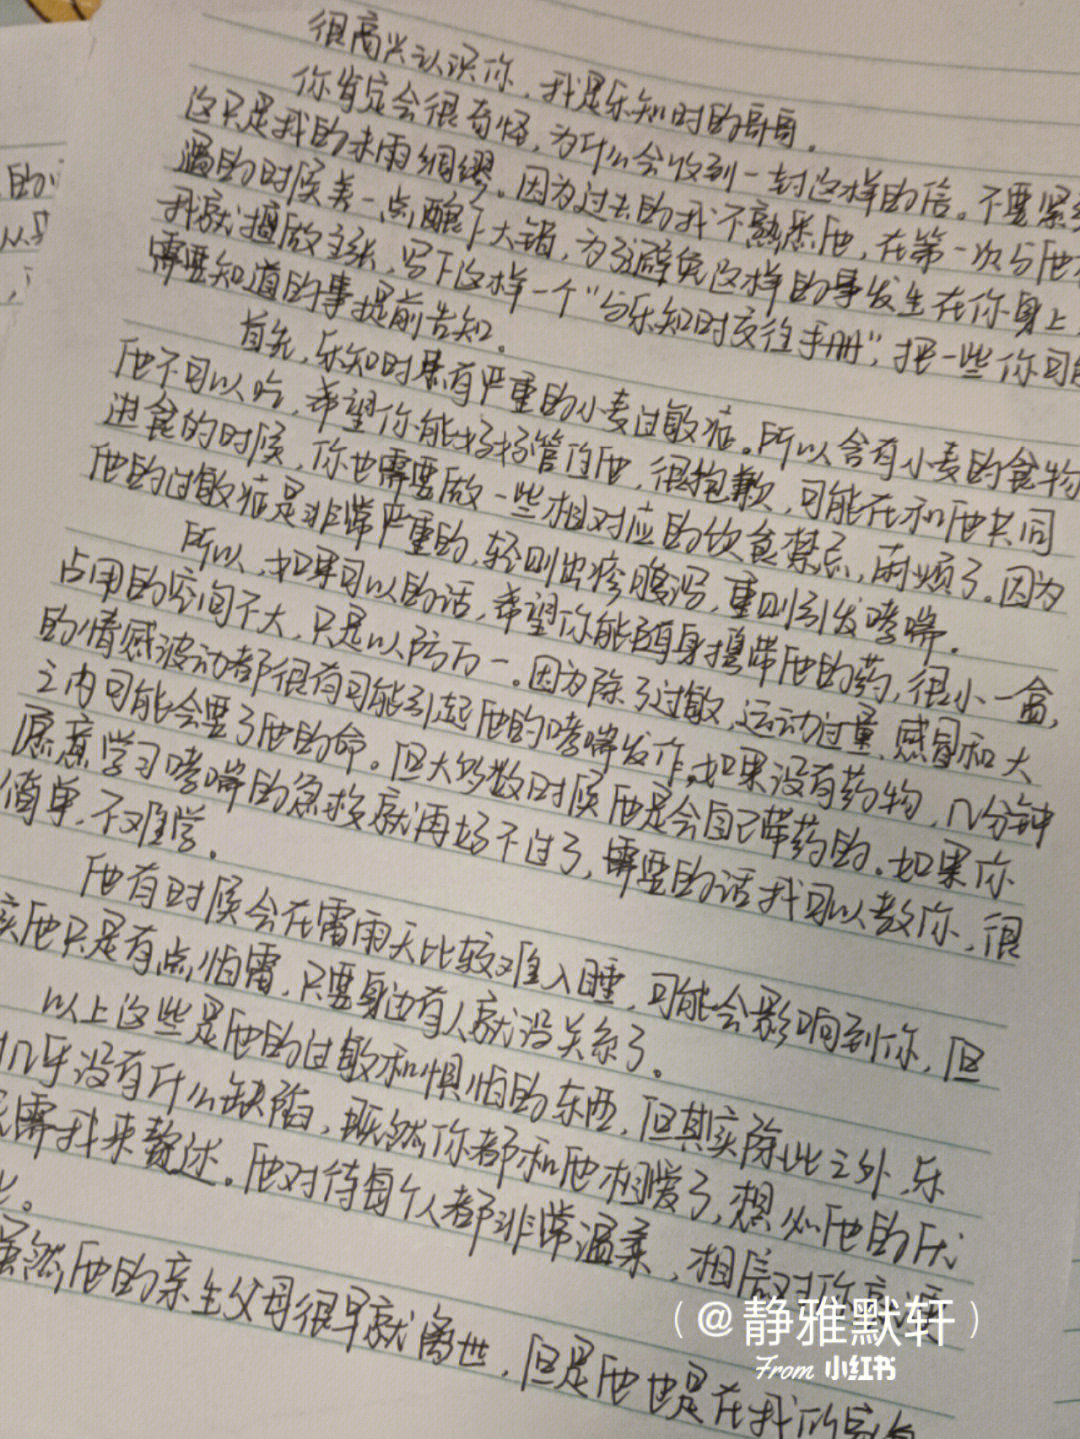 很高兴认识你，我是乐知时的哥哥。
你肯定会很奇怪，为什么会收到一封这样的信。不要紧
这只是我的未雨绸缪。因为过去的我不熟悉他，在第一次与他
遇的时候差一点酿下大错，为了避免这样的事发生在你身上，
我就擅做主张，写下这样一个“与乐知时交往手册”，把一些你可
需要知道的事提前告知。
首先，乐知时患有严重的小麦过敏症。所以含有小麦的食物
他不可以吃，希望你能好好管住他，很抱歉，可能在和他共同
进食的时候，你也需要做一些相对应的饮食禁忌，麻烦了。因为
他的过敏症是非常严重的，轻则出疹腹泻，重则引发哮喘。
所以，如果可以的话，希望你能随身携带他的药，很小一盒，
占用的空间不大，只是以防万一。因为除了过敏，运动过量、感冒和大
的情感波动都很有可能引起他的哮喘发作，如果没有药物，几分钟
之内可能会要了他的命。但大多数时候他是会自己带药的。如果你
愿意学习哮喘的急救就再好不过了，需要的话我可以教你，很
简单，不难学。
他有时候会在雷雨天比较难入睡，可能会影响到你，但
实他只是有点怕雷，只要身边有人就没关系了。
以上这些是他的过敏和惧怕的东西，但其实除此之外，乐
几乎没有什么缺陷，既然你都和他相爱了，想必他的优
需我来赘述。他对待每个人都非常温柔，相信对你
虽然他的亲生父母很早就离世，但是他也是在我的家
（@静雅默轩）
From 小红书